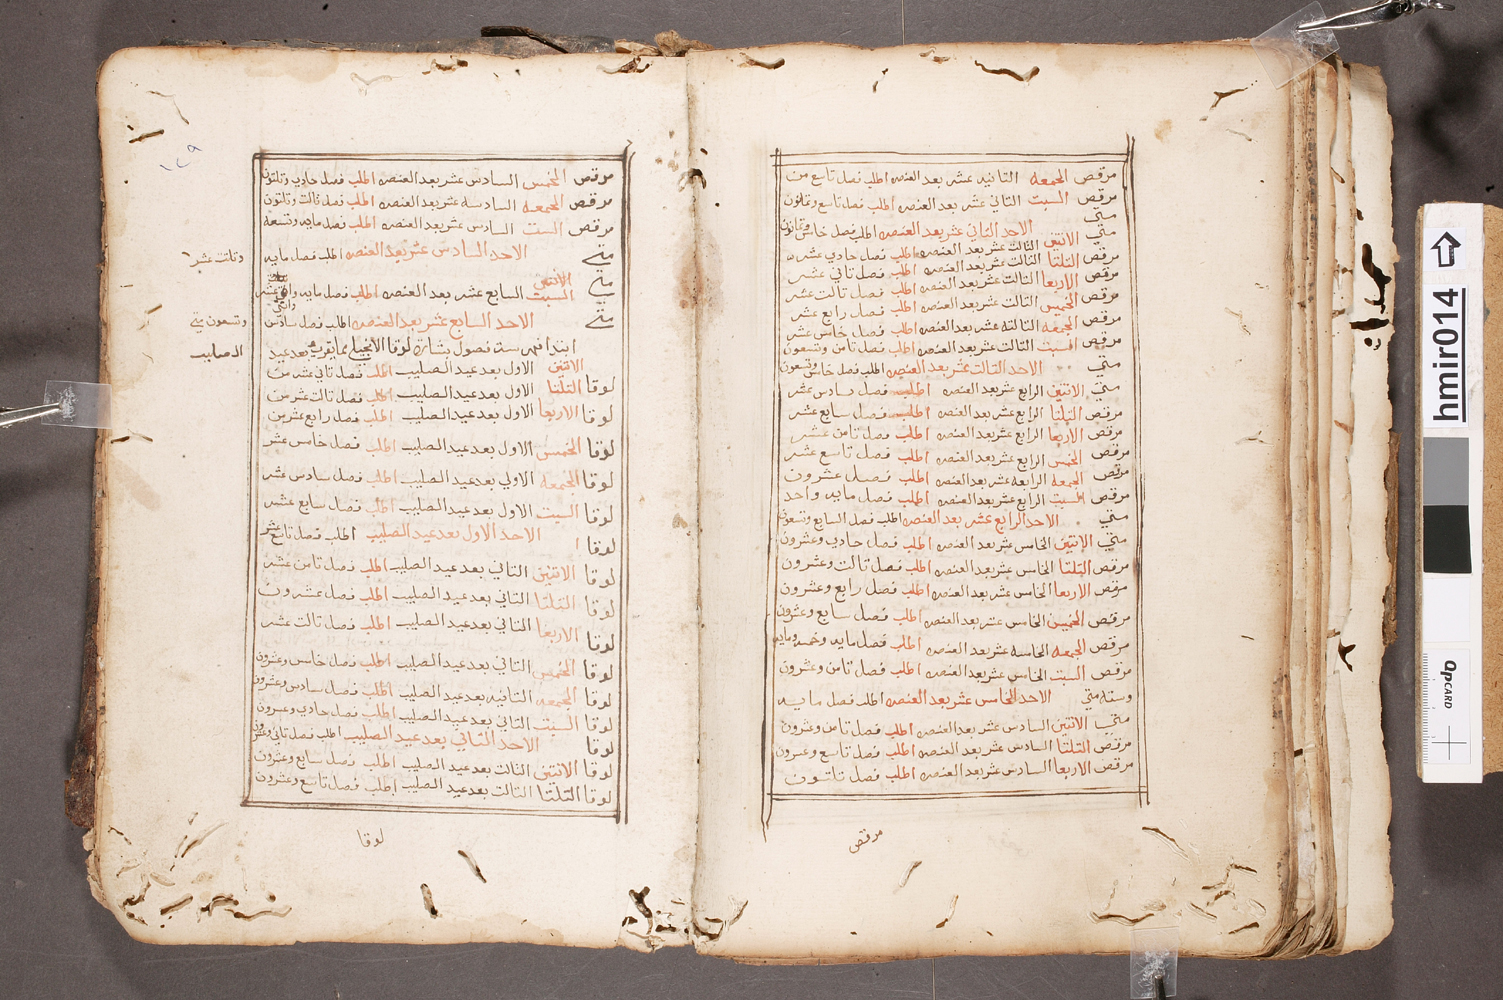 مرقص الجمعه الثانيه عشر بعد العنصره اطلب فصل تاسع من
مرقص السبت الثاني عشر بعد العنصره اطلب فصل تاسع وثمانون
متي
متي الاحد الثاني عشر بعد العنصره اطلب فصل خامس وثمانون
مرقص الاثنين الثالث عشر بعد العنصره اطلب فصل حادي عشر
مرقص الثلثا الثالث عشر بعد العنصره اطلب فصل ثاني عشر
مرقص الاربعا الثالث عشر بعد العنصره اطلب فصل ثالث عشر
مرقص الخميس الثالث عشر بعد العنصره اطلب فصل رابع عشر
مرقص الجمعه الثالثه عشر بعد العنصره اطلب فصل خامس عشر
مرقص السبت الثالث عشر بعد العنصره اطلب فصل ثامن وتسعون
متي الاحد الثالث عشر بعد العنصره اطلب فصل خامس وتسعون
متي الاثنين الرابع عشر بعد العنصره اطلب فصل سادس عشر
مرقص الثلثا الرابع عشر بعد العنصره اطلب فصل سابع عشر
مرقص الاربعا الرابع عشر بعد العنصره اطلب فصل ثامن عشر
مرقص الخميس الرابع عشر بعد العنصره اطلب فصل تاسع عشر
مرقص الجمعه الرابعه عشر بعد العنصره اطلب فصل عشرون
مرقص السبت الرابع عشر بعد العنصره اطلب فصل مايه واحد
متي الاحد الرابع عشر بعد العنصره اطلب فصل السابع وتسعون
متي الاثنين الخامس عشر بعد العنصره اطلب فصل حادي وعشرون
مرقص الثلثا الخامس عشر بعد العنصره اطلب فصل ثالث وعشرون
مرقص الاربعا الخامس عشر بعد العنصره اطلب فصل رابع وعشرون
مرقص الخميس الخامس عشر بعد العنصره اطلب فصل سابع وعشرون
مرقص الجمعه الخامسه عشر بعد العنصره اطلب فصل مايه وخمسه ومايه
مرقص السبت الخامس عشر بعد العنصره اطلب فصل ثامن وعشرون
وسته متي الاحد الخامس عشر بعد العنصره اطلب فصل مايه
متي الاثنين السادس عشر بعد العنصره اطلب فصل ثامن وعشرون
مرقص الثلثا السادس عشر بعد العنصره اطلب فصل تاسع وعشرون
مرقص الاربعا السادس عشر بعد العنصره اطلب فصل ثلثون
مرقص
١٢٩
مرقص الخميس السادس عشر بعد العنصره اطلب فصل حادي وثلثون
مرقص الجمعه السادسه عشر بعد العنصره اطلب فصل ثالث وثلثون
مرقص السبت السادس عشر بعد العنصره اطلب فصل مايه وتسعه
متي الاحد السادس عشر بعد العنصره اطلب فصل مايه
وثلثت عشر
متي الاثنين
السبت السابع عشر بعد العنصره اطلب فصل مايه
متي الاحد السابع عشر بعد العنصره اطلب فصل سادس
وتسعون متي
الصليب
ابتدا فهرسة فصول بشارة لوقا الانجيلي مما يقرى بعد عيد
الاثنين الاول بعد عيد الصليب اطلب فصل ثاني عشر من
لوقا الثلثا الاول بعد عيد الصليب اطلب فصل ثالث عشر من
لوقا الاربعا الاول بعد عيد الصليب اطلب فصل رابع عشر من
لوقا الخميس الاول بعد عيد الصليب اطلب فصل خامس عشر
لوقا الجمعه الاولي بعد عيد الصليب اطلب فصل سادس عشر
لوقا السبت الاول بعد عيد الصليب اطلب فصل سابع عشر
لوقا الاحد الاول بعد عيد الصليب اطلب فصل تاسع عشر
لوقا الاثنين الثاني بعد عيد الصليب اطلب فصل ثامن عشر
لوقا الثلثا الثاني بعد عيد الصليب اطلب فصل عشرون
لوقا الاربعا الثاني بعد عيد الصليب اطلب فصل ثالث عشر
لوقا الخميس الثاني بعد عيد الصليب اطلب فصل خامس وعشرون
لوقا الجمعه الثانيه بعد عيد الصليب اطلب فصل سادس وعشرون
لوقا السبت الثاني بعد عيد الصليب اطلب فصل حادي وعشرون
لوقا الاحد الثاني بعد عيد الصليب اطلب فصل ثاني وعشرون
لوقا الاثنين الثالث بعد عيد الصليب اطلب فصل سابع وعشرون
لوقا الثلثا الثالث بعد عيد الصليب اطلب فصل تاسع وعشرون
لوقا
hmir014
dpCARD